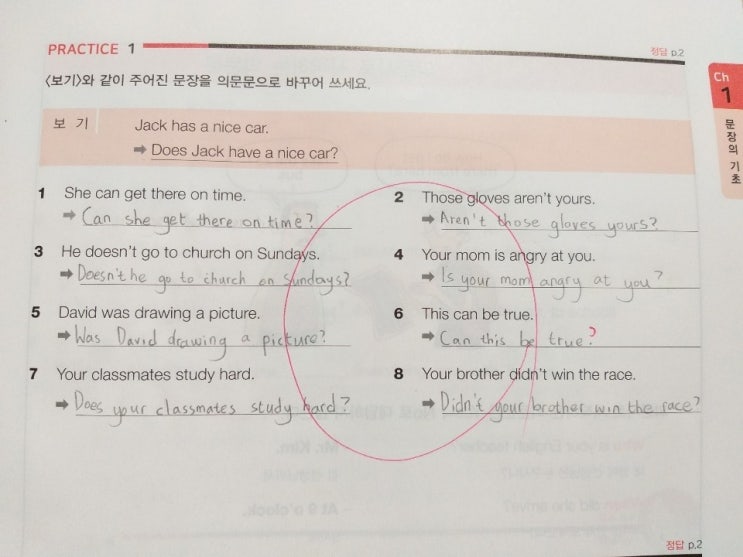 PRACTICE 1
정답 p.2
<보기>와 같이 주어진 문장을 의문문으로 바꾸어 쓰세요.
Ch 1 문장의 기초
보 기 Jack has a nice car.
➡ Does Jack have a nice car?
1 She can get there on time.
➡ Can she get there on time?
2 Those gloves aren't yours.
➡ Aren't those gloves yours?
3 He doesn't go to church on Sundays.
➡ Doesn't he go to church on Sundays?
4 Your mom is angry at you.
➡ Is your mom angry at you?
5 David was drawing a picture.
➡ Was David drawing a picture?
6 This can be true.
➡ Can this be true?
7 Your classmates study hard.
➡ Does your classmates study hard?
8 Your brother didn't win the race.
➡ Didn't your brother win the race?
정답 p.2